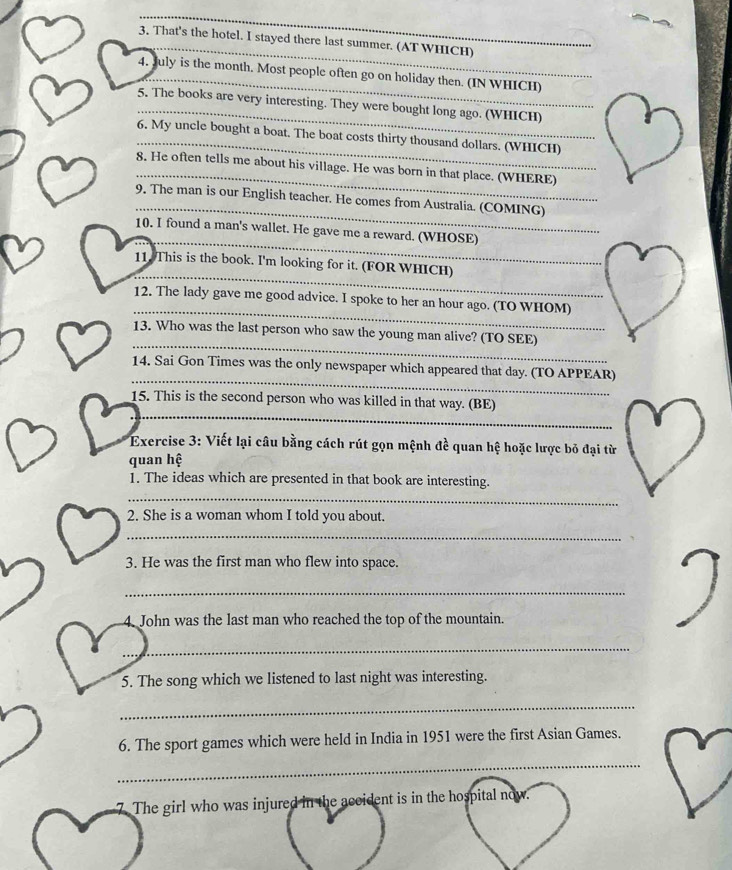 3. That's the hotel. I stayed there last summer. (AT WHICH)
4. July is the month. Most people often go on holiday then. (IN WHICH)
5. The books are very interesting. They were bought long ago. (WHICH)
6. My uncle bought a boat. The boat costs thirty thousand dollars. (WHICH)
8. He often tells me about his village. He was born in that place. (WHERE)
9. The man is our English teacher. He comes from Australia. (COMING)
10. I found a man's wallet. He gave me a reward. (WHOSE)
11. This is the book. I'm looking for it. (FOR WHICH)
12. The lady gave me good advice. I spoke to her an hour ago. (TO WHOM)
13. Who was the last person who saw the young man alive? (TO SEE)
14. Sai Gon Times was the only newspaper which appeared that day. (TO APPEAR)
15. This is the second person who was killed in that way. (BE)
Exercise 3: Viết lại câu bằng cách rút gọn mệnh đề quan hệ hoặc lược bỏ đại từ
quan hệ
1. The ideas which are presented in that book are interesting.
2. She is a woman whom I told you about.
3. He was the first man who flew into space.
4. John was the last man who reached the top of the mountain.
5. The song which we listened to last night was interesting.
6. The sport games which were held in India in 1951 were the first Asian Games.
7. The girl who was injured in the accident is in the hospital now.